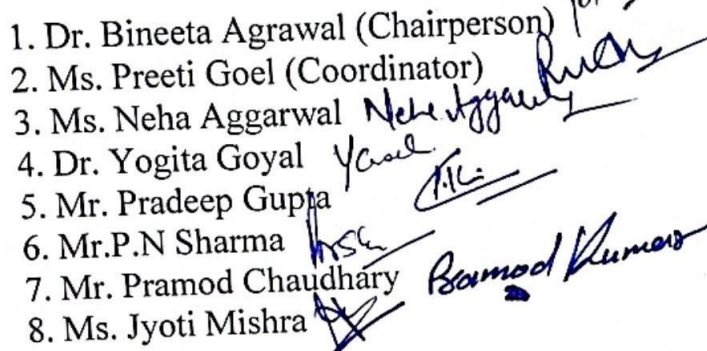 1. Dr. Bineeta Agrawal (Chairperson)
2. Ms. Preeti Goel (Coordinator)
3. Ms. Neha Aggarwal Neha Aggarwal
4. Dr. Yogita Goyal
5. Mr. Pradeep Gupta
6. Mr.P.N Sharma
7. Mr. Pramod Chaudhary Pramod Kumar
8. Ms. Jyoti Mishra